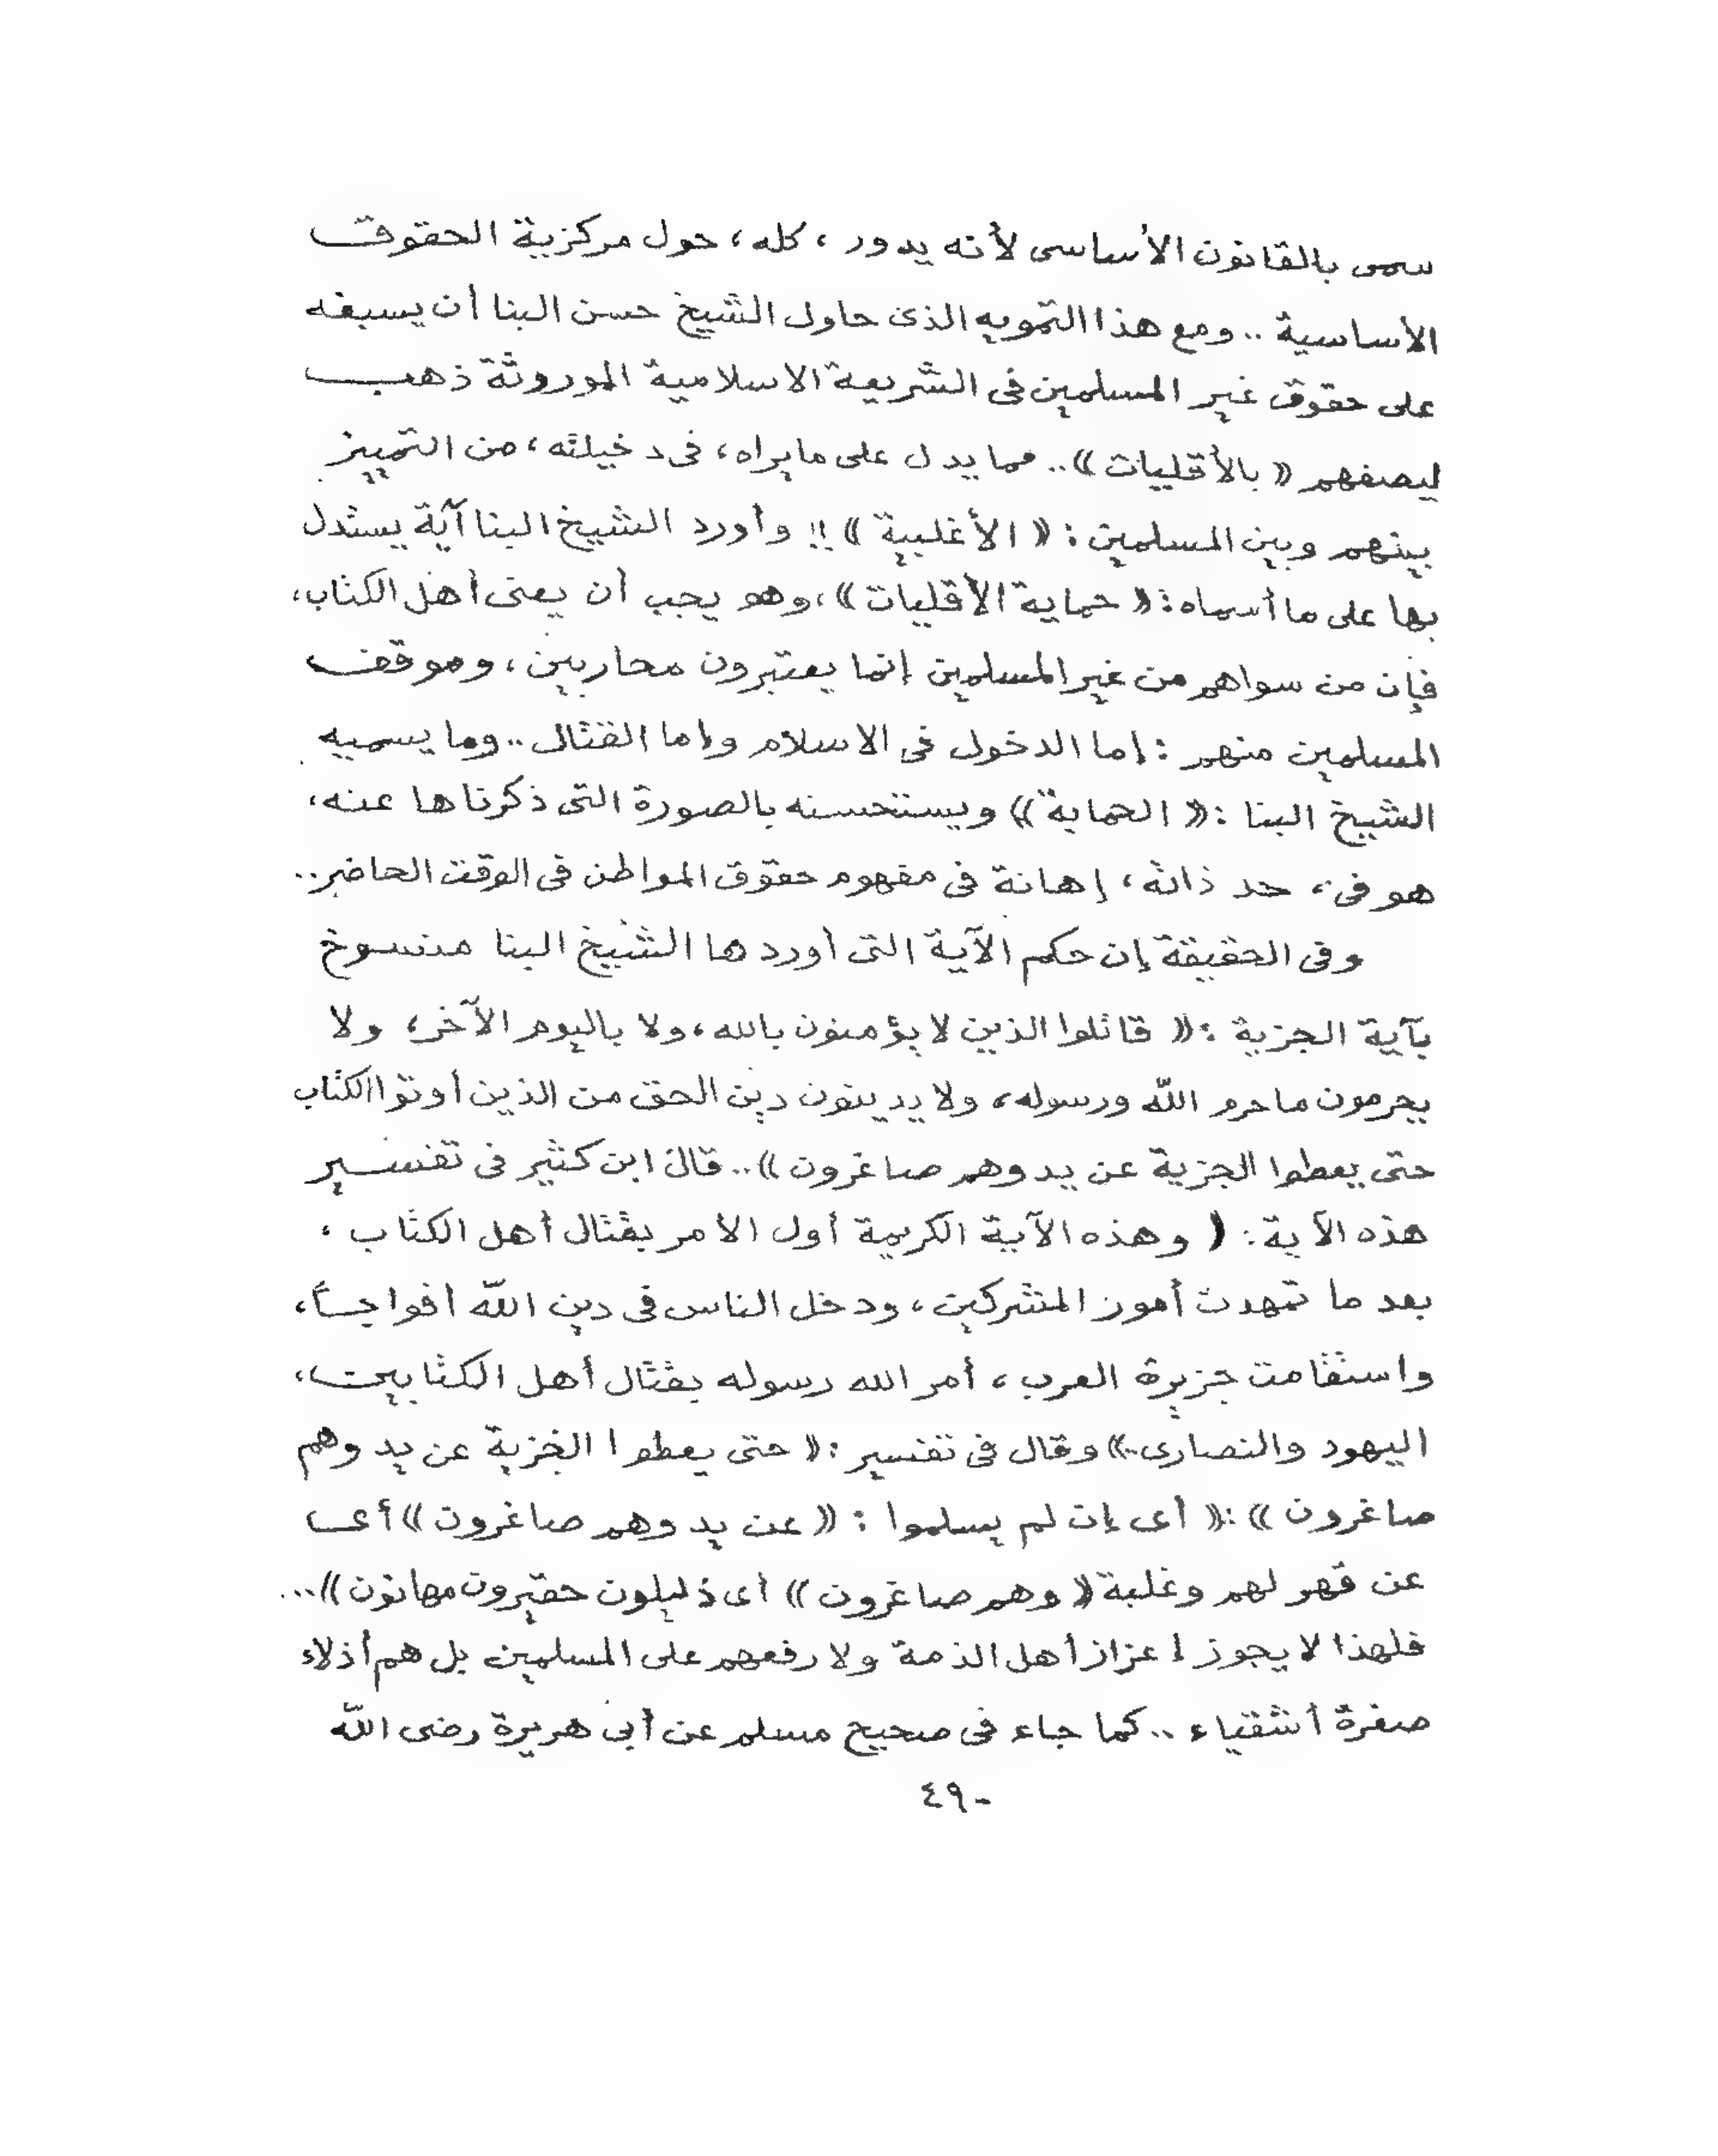 سمى بالقانون الأساسى لأنه يدور ، كله ، حول مركزية الحقوق
الأساسية .. ومع هذا التمويه الذى حاول الشيخ حسن البنا أن يسبغه
على حقوق غير المسلمين فى الشريعة الاسلامية الموروثة ذهب
ليصفهم « بالأقليات » .. مما يدل على مايراه ، فى دخيلته ، من التمييز
بينهم وبين المسلمين : « الأغلبية » !! وأورد الشيخ البنا آية يستدل
بها على ما أسماه : « حماية الأقليات » ، وهو يجب أن يعنى أهل الكتاب ،
فإن من سواهم من غير المسلمين إنما يعتبرون محاربين ، وموقف
المسلمين منهم : إما الدخول فى الاسلام وإما القتال .. وما يسميه
الشيخ البنا : « الحماية » ويستحسنه بالصورة التى ذكرناها عنه ،
هو فى ، حد ذاته ، إهانة فى مفهوم حقوق المواطن فى الوقت الحاضر ..
وفى الحقيقة إن حكم الآية التى أوردها الشيخ البنا منسوخ
بآية الجزية : « قاتلوا الذين لا يؤمنون بالله ، ولا باليوم الآخر ، ولا
يحرمون ما حرم الله ورسوله ، ولا يدينون دين الحق من الذين أوتوا الكتاب
حتى يعطوا الجزية عن يد وهم صاغرون » .. قال ابن كثير فى تفسير
هذه الآية : ( وهذه الآية الكريمة أول الأمر بقتال أهل الكتاب ،
بعد ما تمهدت أمور المشركين ، ودخل الناس فى دين الله أفواجاً ،
واستقامت جزيرة العرب ، أمر الله رسوله بقتال أهل الكتابين ،
اليهود والنصارى .. » وقال فى تفسير : « حتى يعطوا الجزية عن يد وهم
صاغرون » : « أى إن لم يسلموا : « عن يد وهم صاغرون » أى
عن قهر لهم وغلبة « وهم صاغرون » أى ذليلون حقيرون مهانون » ...
فلهذا لا يجوز إعزاز أهل الذمة ولا رفعهم على المسلمين بل هم أذلاء
صغرة أشقياء .. كما جاء فى صحيح مسلم عن أبى هريرة رضى الله
٤٩-